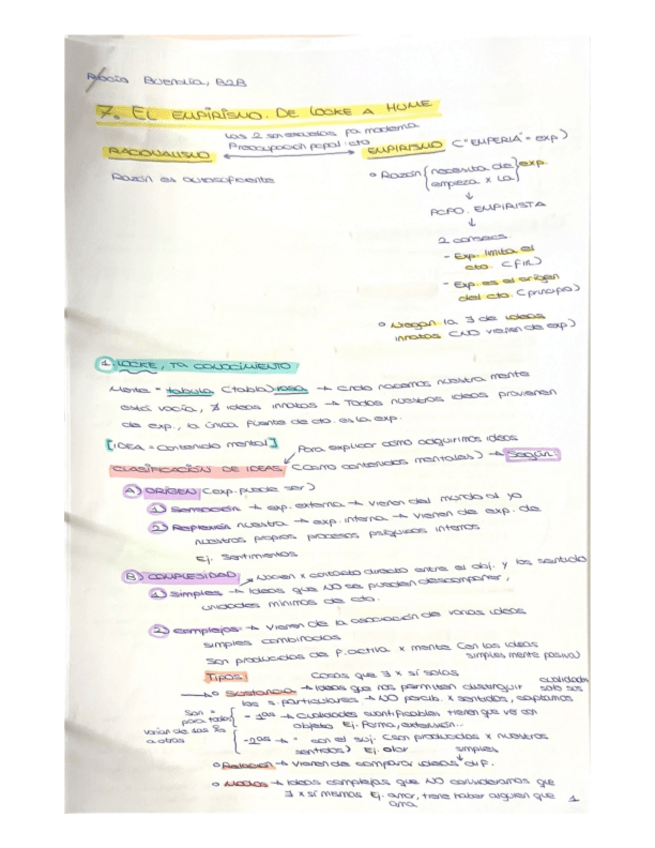 Rocío Buendía, B2B
7. EL EMPIRISMO. DE LOCKE A HUME
Las 2 son escuelas fa moderna
RACIONALISMO ↔ EMPIRISMO ("EMPERIA" = exp)
Preocupación ppal: cto
Razón es autosuficiente
• Razón {necesita de} exp.
{empieza x la}
↓
PCPO. EMPIRISTA
↓
2 consecs.
- Exp. limita el
cto. (fin)
- Exp es el origen
del cto. (principio)
• Niegan la ∃ de ideas
innatas (NO vienen de exp)
1 LOCKE, Tª CONOCIMIENTO
Mente = tabula (tabla) rasa → Cndo nacemos nuestra mente
está vacía, ∄ ideas innatas → Todas nuestras ideas provienen
de exp., la única fuente de cto. es la exp.
[IDEA = contenido mental]
Para explicar cómo adquirimos ideas
CLASIFICACIÓN DE IDEAS (como contenidos mentales) → Según:
A) ORIGEN (exp. puede ser)
1) Sensación → exp. externa → vienen del mundo al yo
2) Reflexión nuestra → exp. interna → vienen de exp. de
nuestros propios procesos psíquicos internos
Ej. Sentimientos
B) COMPLEJIDAD
Nacen x contacto directo entre el obj. y los sentido
1) Simples → Ideas que NO se pueden descomponer,
unidades mínimas de cto.
2) Complejas → Vienen de la asociación de varias ideas
simples combinadas
Son producidas de f. activa x mente (en las ideas
simples mente pasiva)
Tipos:
Cosas que ∃ x sí solas
→ • Sustancia → Ideas que nos permiten distinguir
los s. particulares → NO percib. x sentidos, captamos
cualidades
solo sus
Son =
para todos
varían de unas
a otras
- 1ªs → Cualidades cuantificables, tienen que ver con
objeto Ej. Forma, extensión...
- 2ªs → " con el suj. (son producidas x nuestros
sentidos) Ej. olor
simples
• Relación → Vienen de comparar ideas dif.
• Modos → Ideas complejas que NO consideramos que
∃ x sí mismas Ej. amor, tiene haber alguien que
ama
1